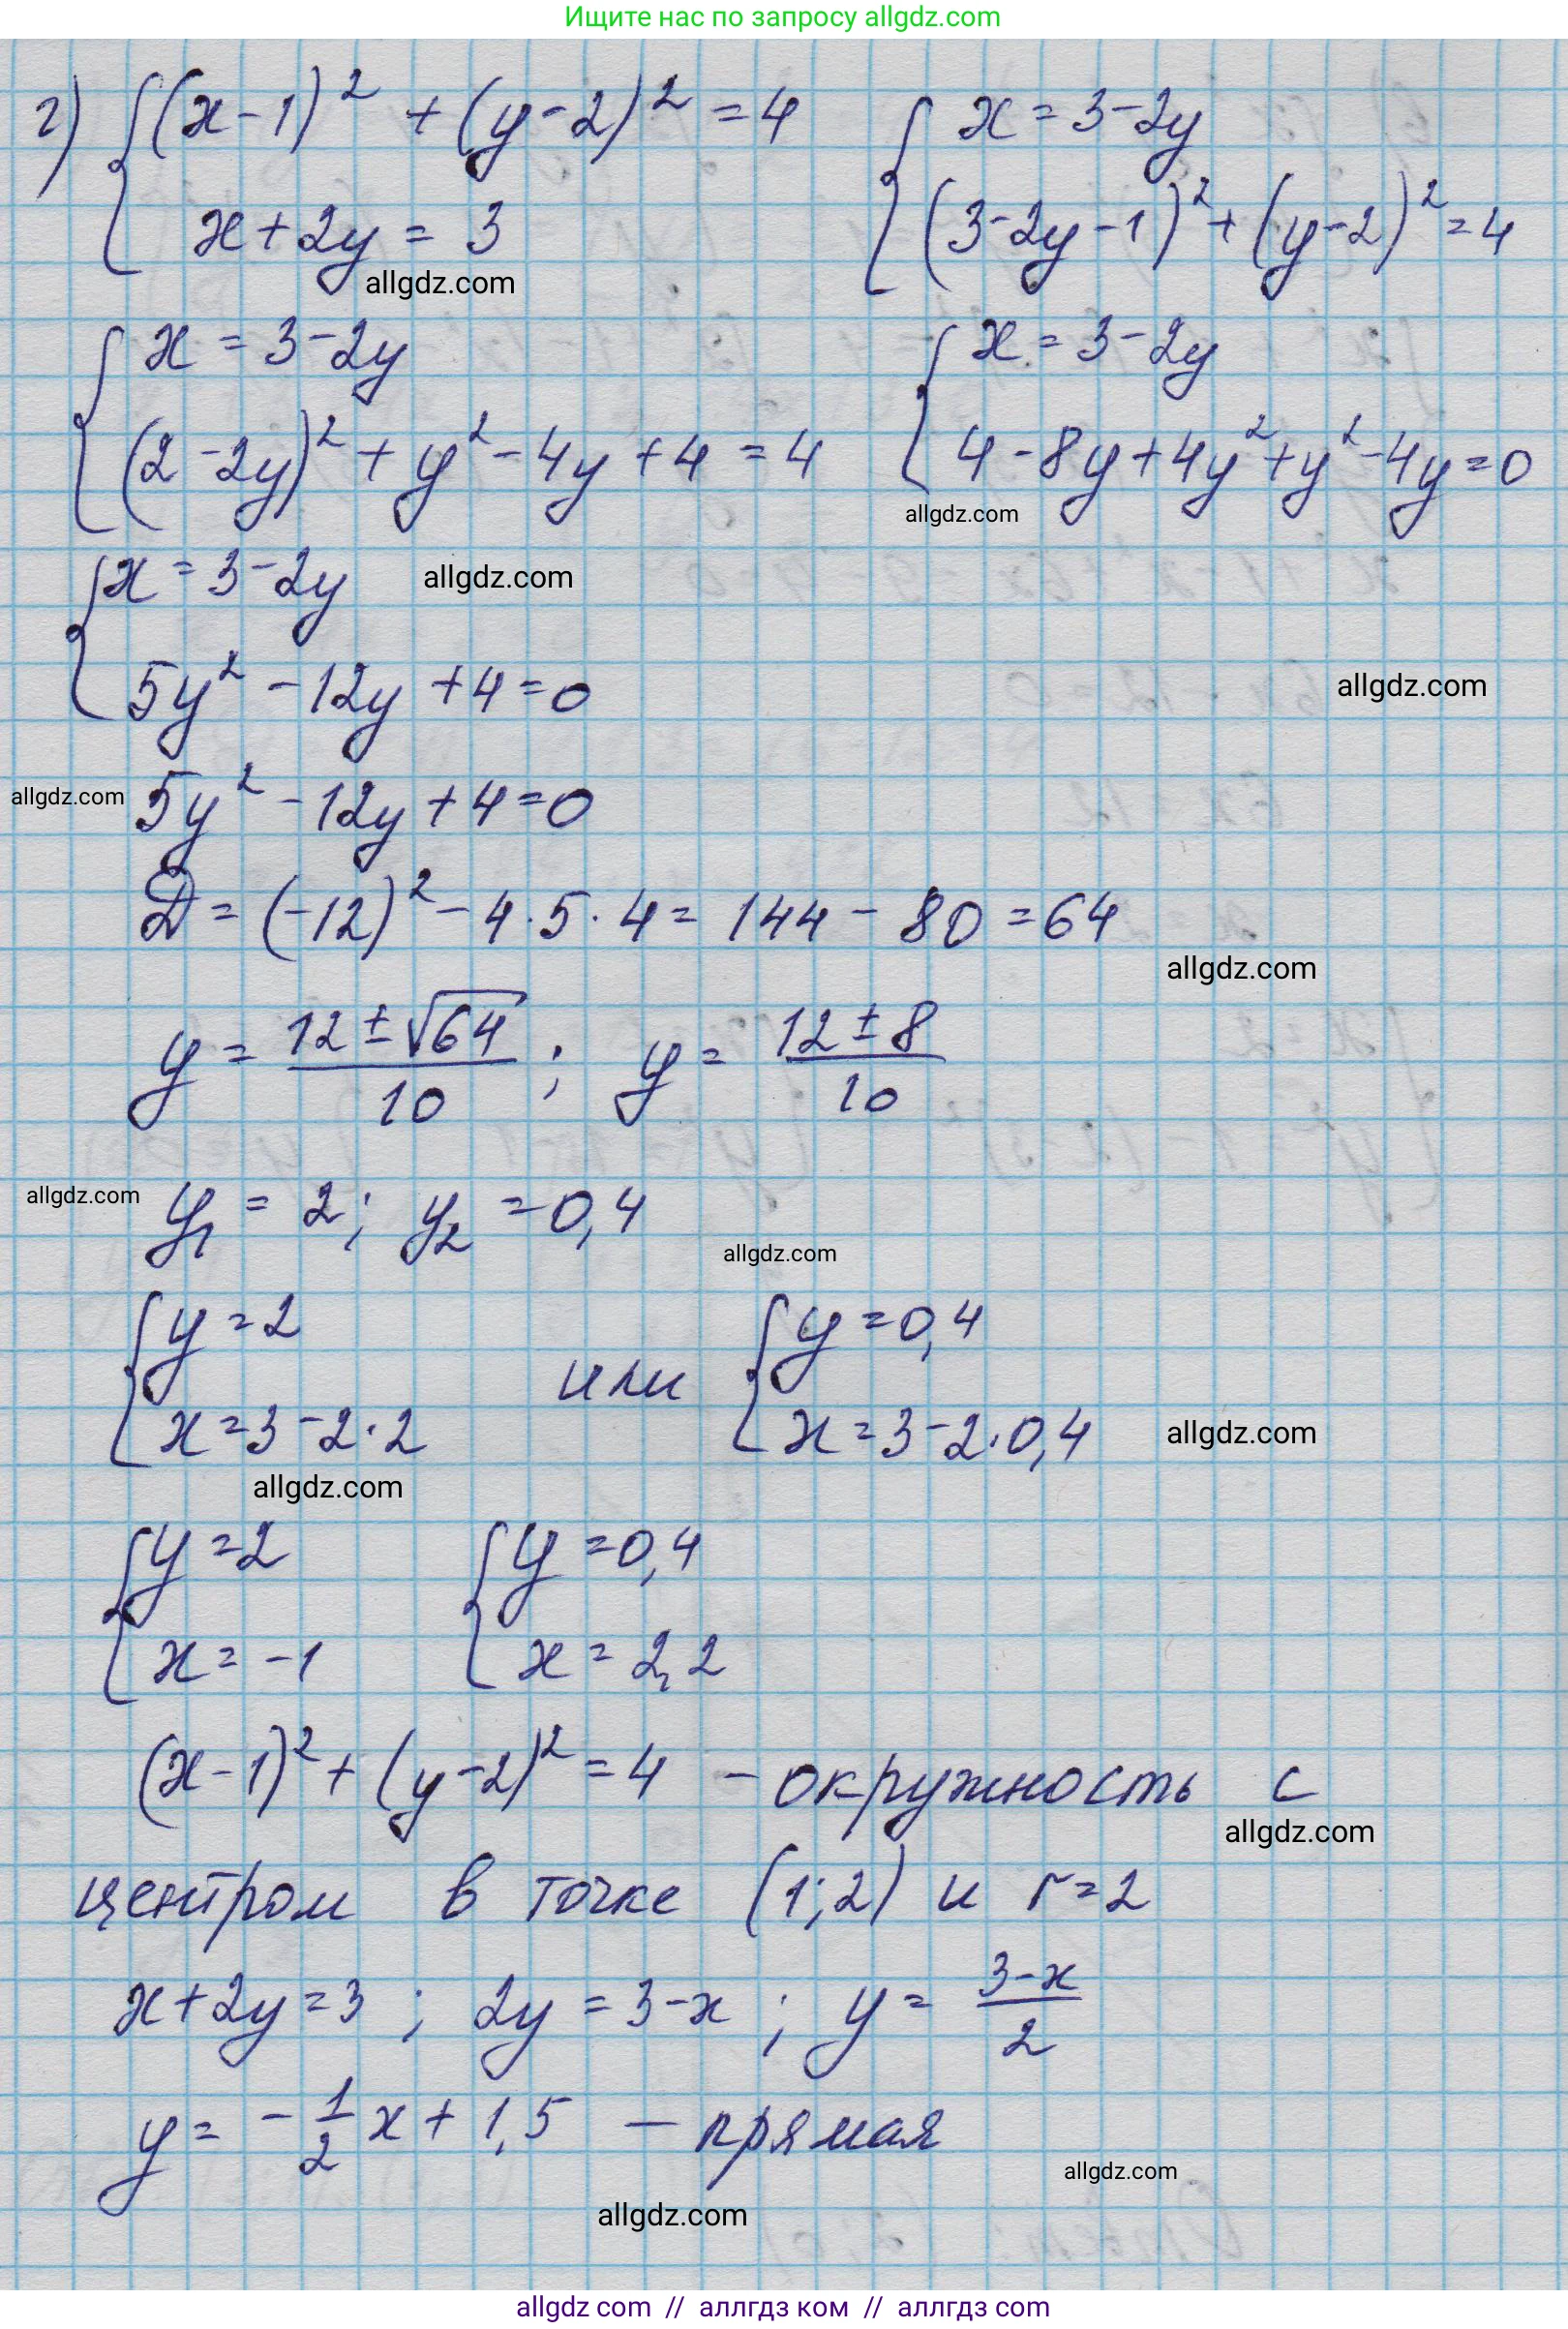 Ищите нас по запросу allgdz.com
г) { (x-1)² + (y-2)² = 4    { x = 3-2y
x+2y = 3    (3-2y-1)² + (y-2)² = 4
allgdz.com
{ x = 3-2y    { x = 3-2y
(2-2y)² + y² - 4y + 4 = 4    4-8y+4y²+y²-4y=0
allgdz.com
{ x = 3-2y    allgdz.com
5y² - 12y + 4 = 0    allgdz.com
allgdz.com    5y² - 12y + 4 = 0
D = (-12)² - 4·5·4 = 144 - 80 = 64
allgdz.com
y = (12±√64)/10 ; y = (12±8)/10
allgdz.com    y₁ = 2; y₂ = 0,4
allgdz.com
{ y = 2    или    { y = 0,4
x = 3-2·2    x = 3-2·0,4    allgdz.com
allgdz.com
{ y = 2    { y = 0,4
x = -1    x = 2,2
(x-1)² + (y-2)² = 4 - окружность с
allgdz.com
центром в точке (1;2) и r=2
x+2y=3 ; 2y = 3-x ; y = (3-x)/2
y = -1/2 x + 1,5 — прямая
allgdz.com
allgdz.com
allgdz com // аллгдз ком // аллгдз com